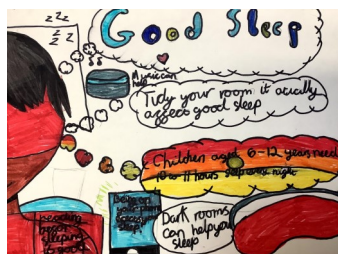 zzz
zzz
Good Sleep
Music can
help
Tidy your room it acually
affects good sleep
Children aged 6-12 years need
10 to 11 hours sleep every night
reading
before
sleeping
is good
Being on
your phone
sleep!
Dark rooms
can help you
sleep